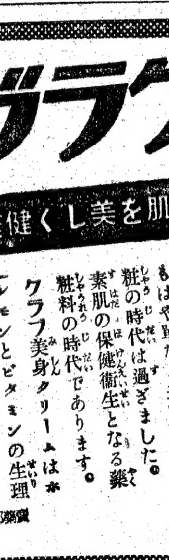 クラブ
肌を美しく健
もはや單
粧の時代は過ぎました。
素肌の保健衞生となる藥
粧料の時代であります。
クラブ美身クリームは水
モンとビタミンの生理